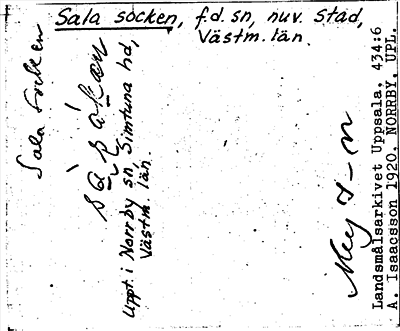 Sala socken, f.d. sn, nuv. stad,
Västm. län.
Sala socken
Uppt. i Norrby sn, Simtuna hd,
Västm. län.
Landsmålsarkivet Uppsala. 434:6
A. Isaacsson 1920. NORRBY, UPL.